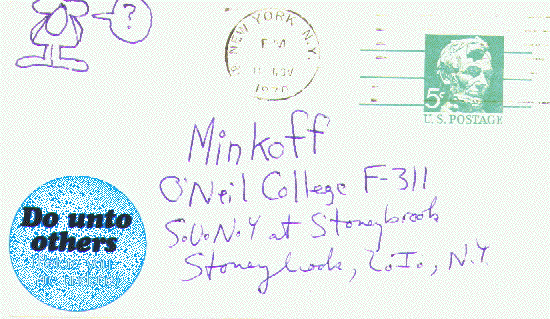 ?
NEW YORK, N.Y.
PM
NOV
5¢
U.S. POSTAGE
Minkoff
O'Neil College F-311
S.U.N.Y at Stoneybrook
Stoneybrook, L.I., N.Y
Do unto
others